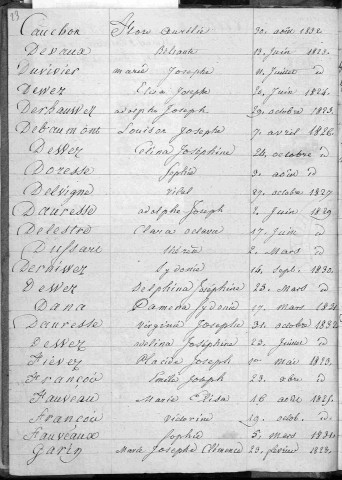 13
Cauchon Flore Aurélie 30. août 1832.
Devaux Belsante 13. Juin 1823.
Duvivier marie Josephe 11. Juillet d
Dewez Elisa Josephe 20. Juin 1824.
Derhauwez adolphe Joseph 29. octobre 1825.
Debaumont Louise Josephe 7. avril 1826.
Dessez Celina Joséphine 24. octobre d
Doresse Sophie 9. août d
Delvigne vital 27. octobre 1827
Dauresse adolphe Joseph 2. Juin 1829.
Delestré Clara octavie 17. Juin d
Dussart 2. Mars d
Derniwez Sydonie 14. Sept. 1830.
Dewez Delphina Joséphine 23. Mars d
Dana Pamena Sydonie 17. Mars 1831.
Dauresse Virginie Josephe 31. octobre 1832.
Dewez Joséphine 23. Juillet d
Fievez Placide Joseph 1er mai 1823.
Françou Emile Joseph 23. xbre d
Fauveau Maria Elisa 16 août 1825.
Françou victorine 19. octob. d
Fauveaux Sophie 3. Mars 1831.
Garin Marie Josephe Clémence 23. février 1823.